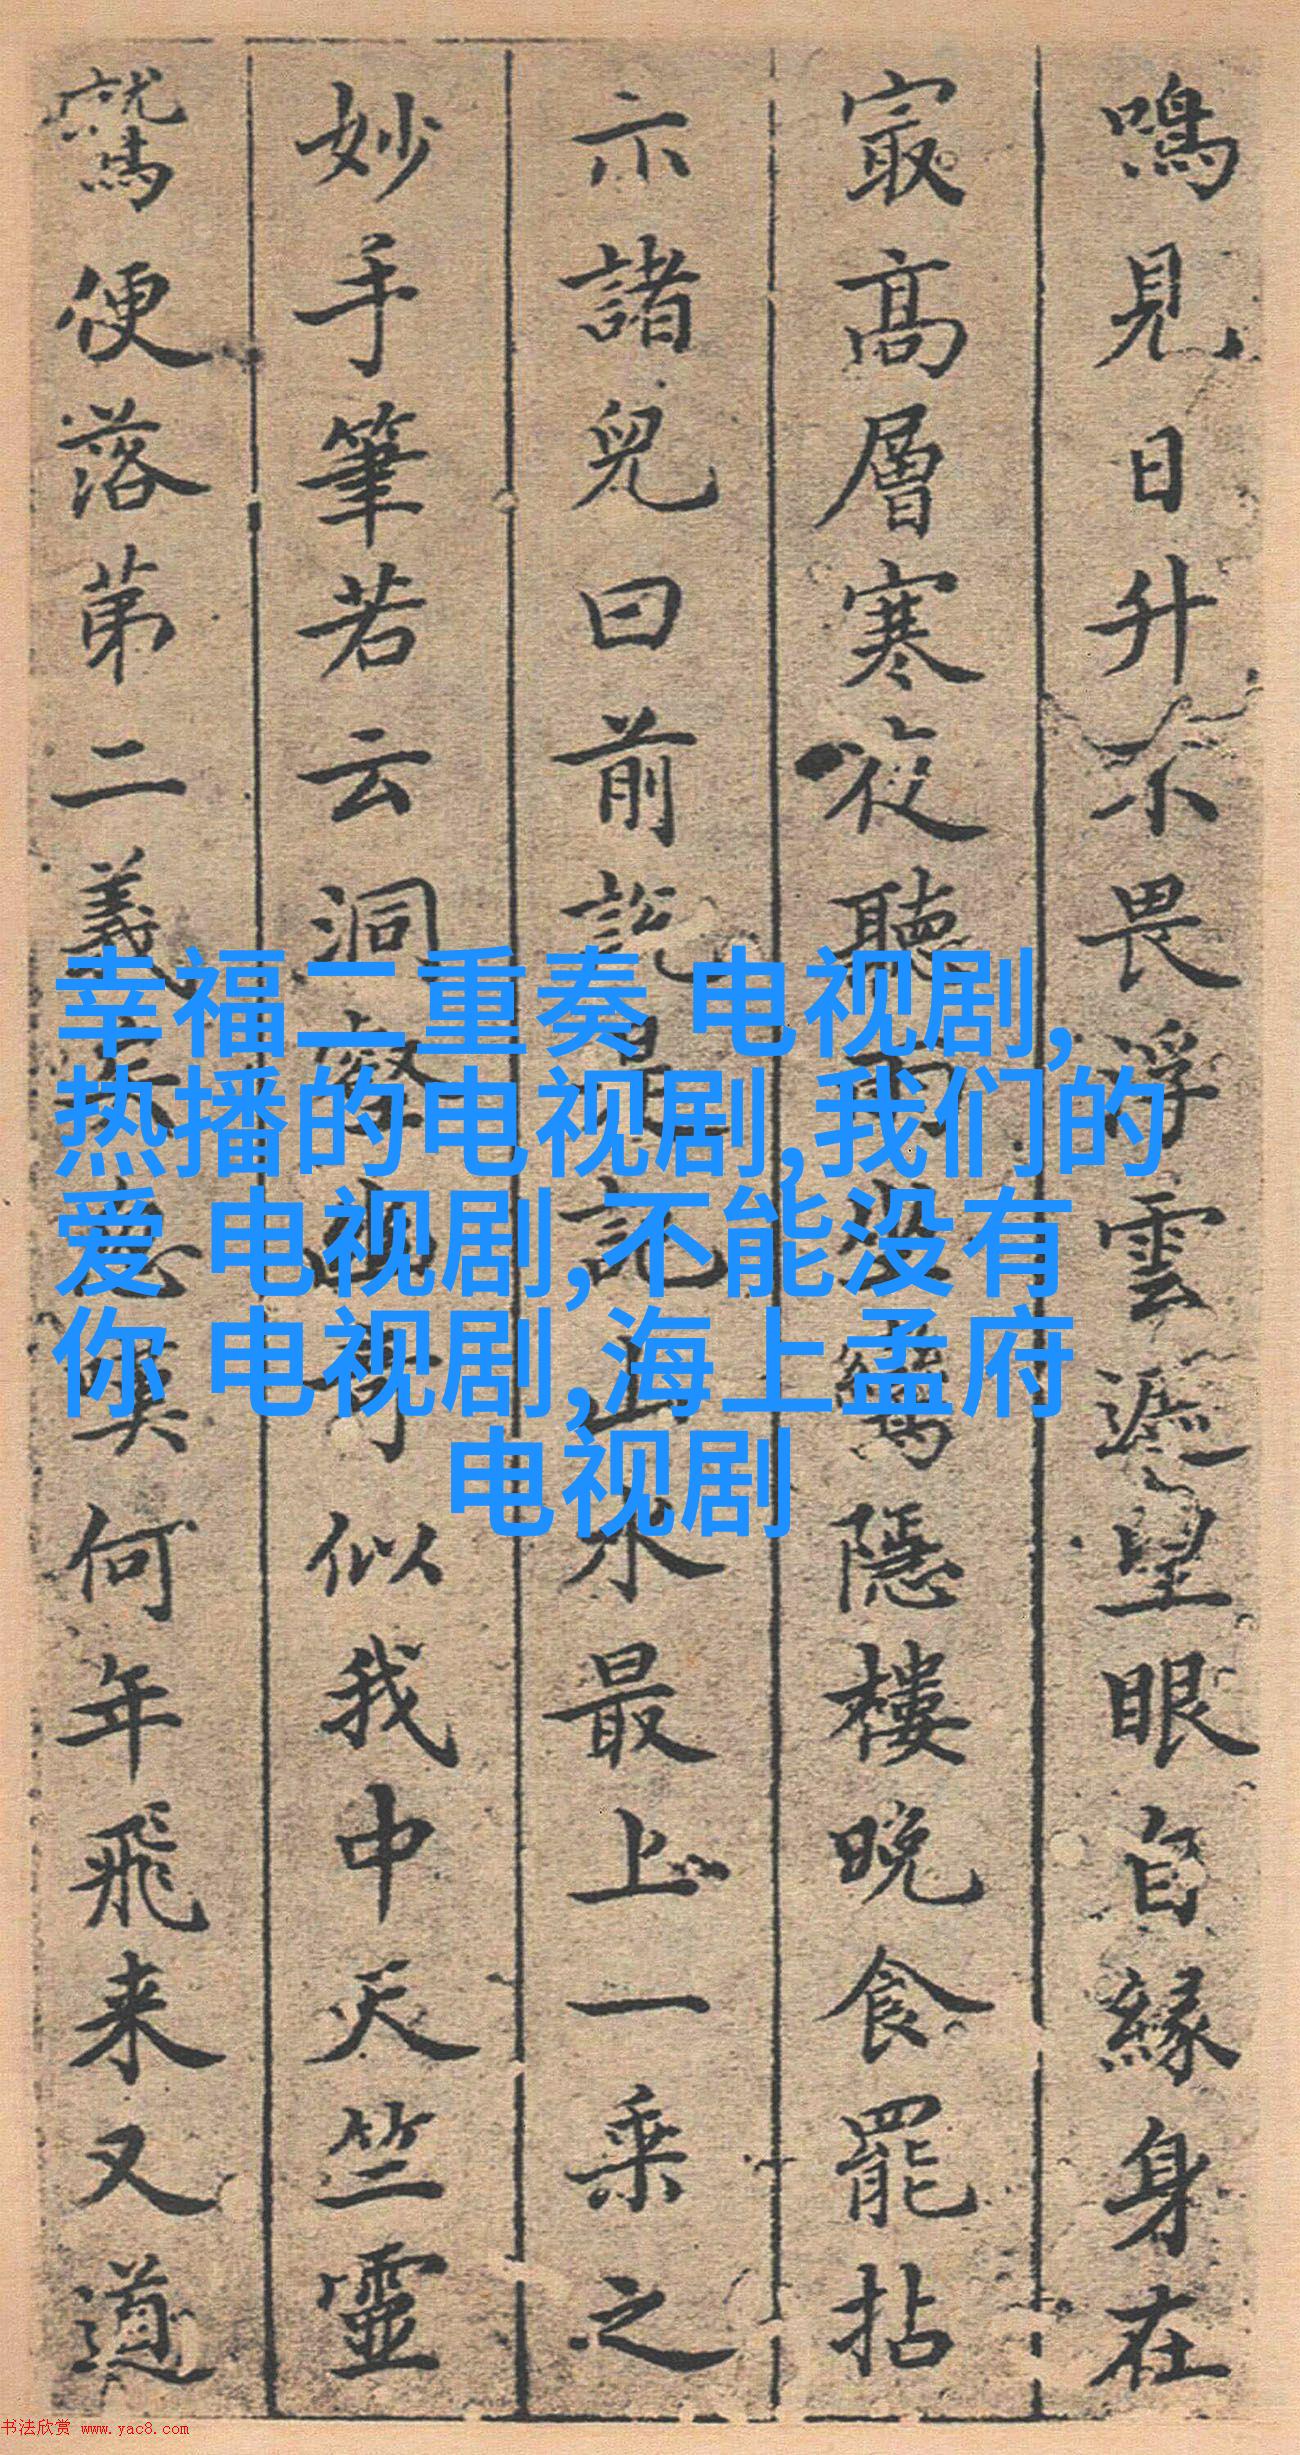 鳴見日升不畏浮雲遮望眼自緣身在
冣高層寒夜聽雨鶯隱樓晚食罷拈
示諸兒曰前説是記山水最上一乘之
妙手筆若云洞壑幽奇似我中天竺靈
鷲便落苐二義何年飛来又道
幸福二重奏 电视剧,
热播的电视剧,我们的
爱 电视剧,不能没有
你 电视剧,海上孟府
电视剧
书法欣赏 www.yac8.com